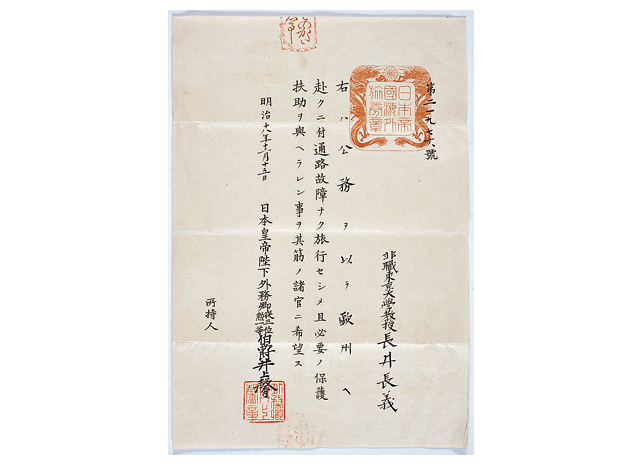 第二一九七六號
日本帝
國海外
旅券章
非職東京大學教授長井長義
右ハ公務ヲ以テ歐州ヘ
赴クニ付通路故障ナク旅行セシメ且必要ノ保護
扶助ヲ與ヘラレン事ヲ其筋ノ諸官ニ希望ス
明治十八年十二月十五日
日本皇帝陛下外務卿從三位勲一等伯爵井上馨
所持人